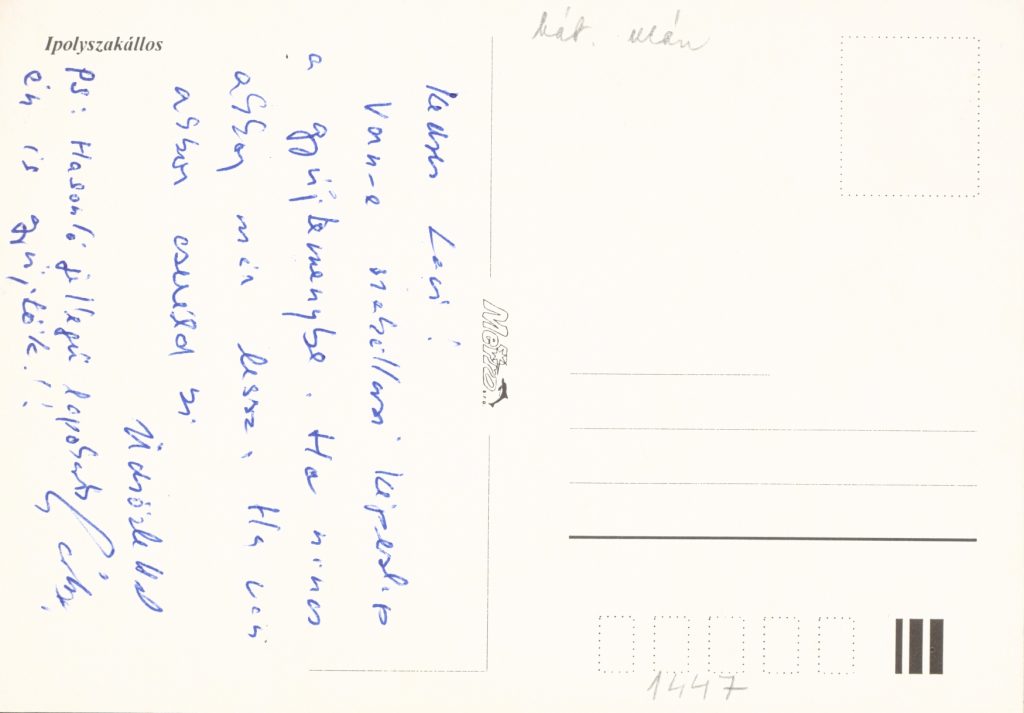 Ipolyszakállos
hát. után
Kedves Laci!
Van-e szakállasi képeslap
a gyűjteménybe. Ha nincs
akkor már lessz. Ha van
akkor cseréld ki
Üdvözlettel
PS: Hasonló jellegű lapokat
én is gyűjtök!!
Metzo...
1447